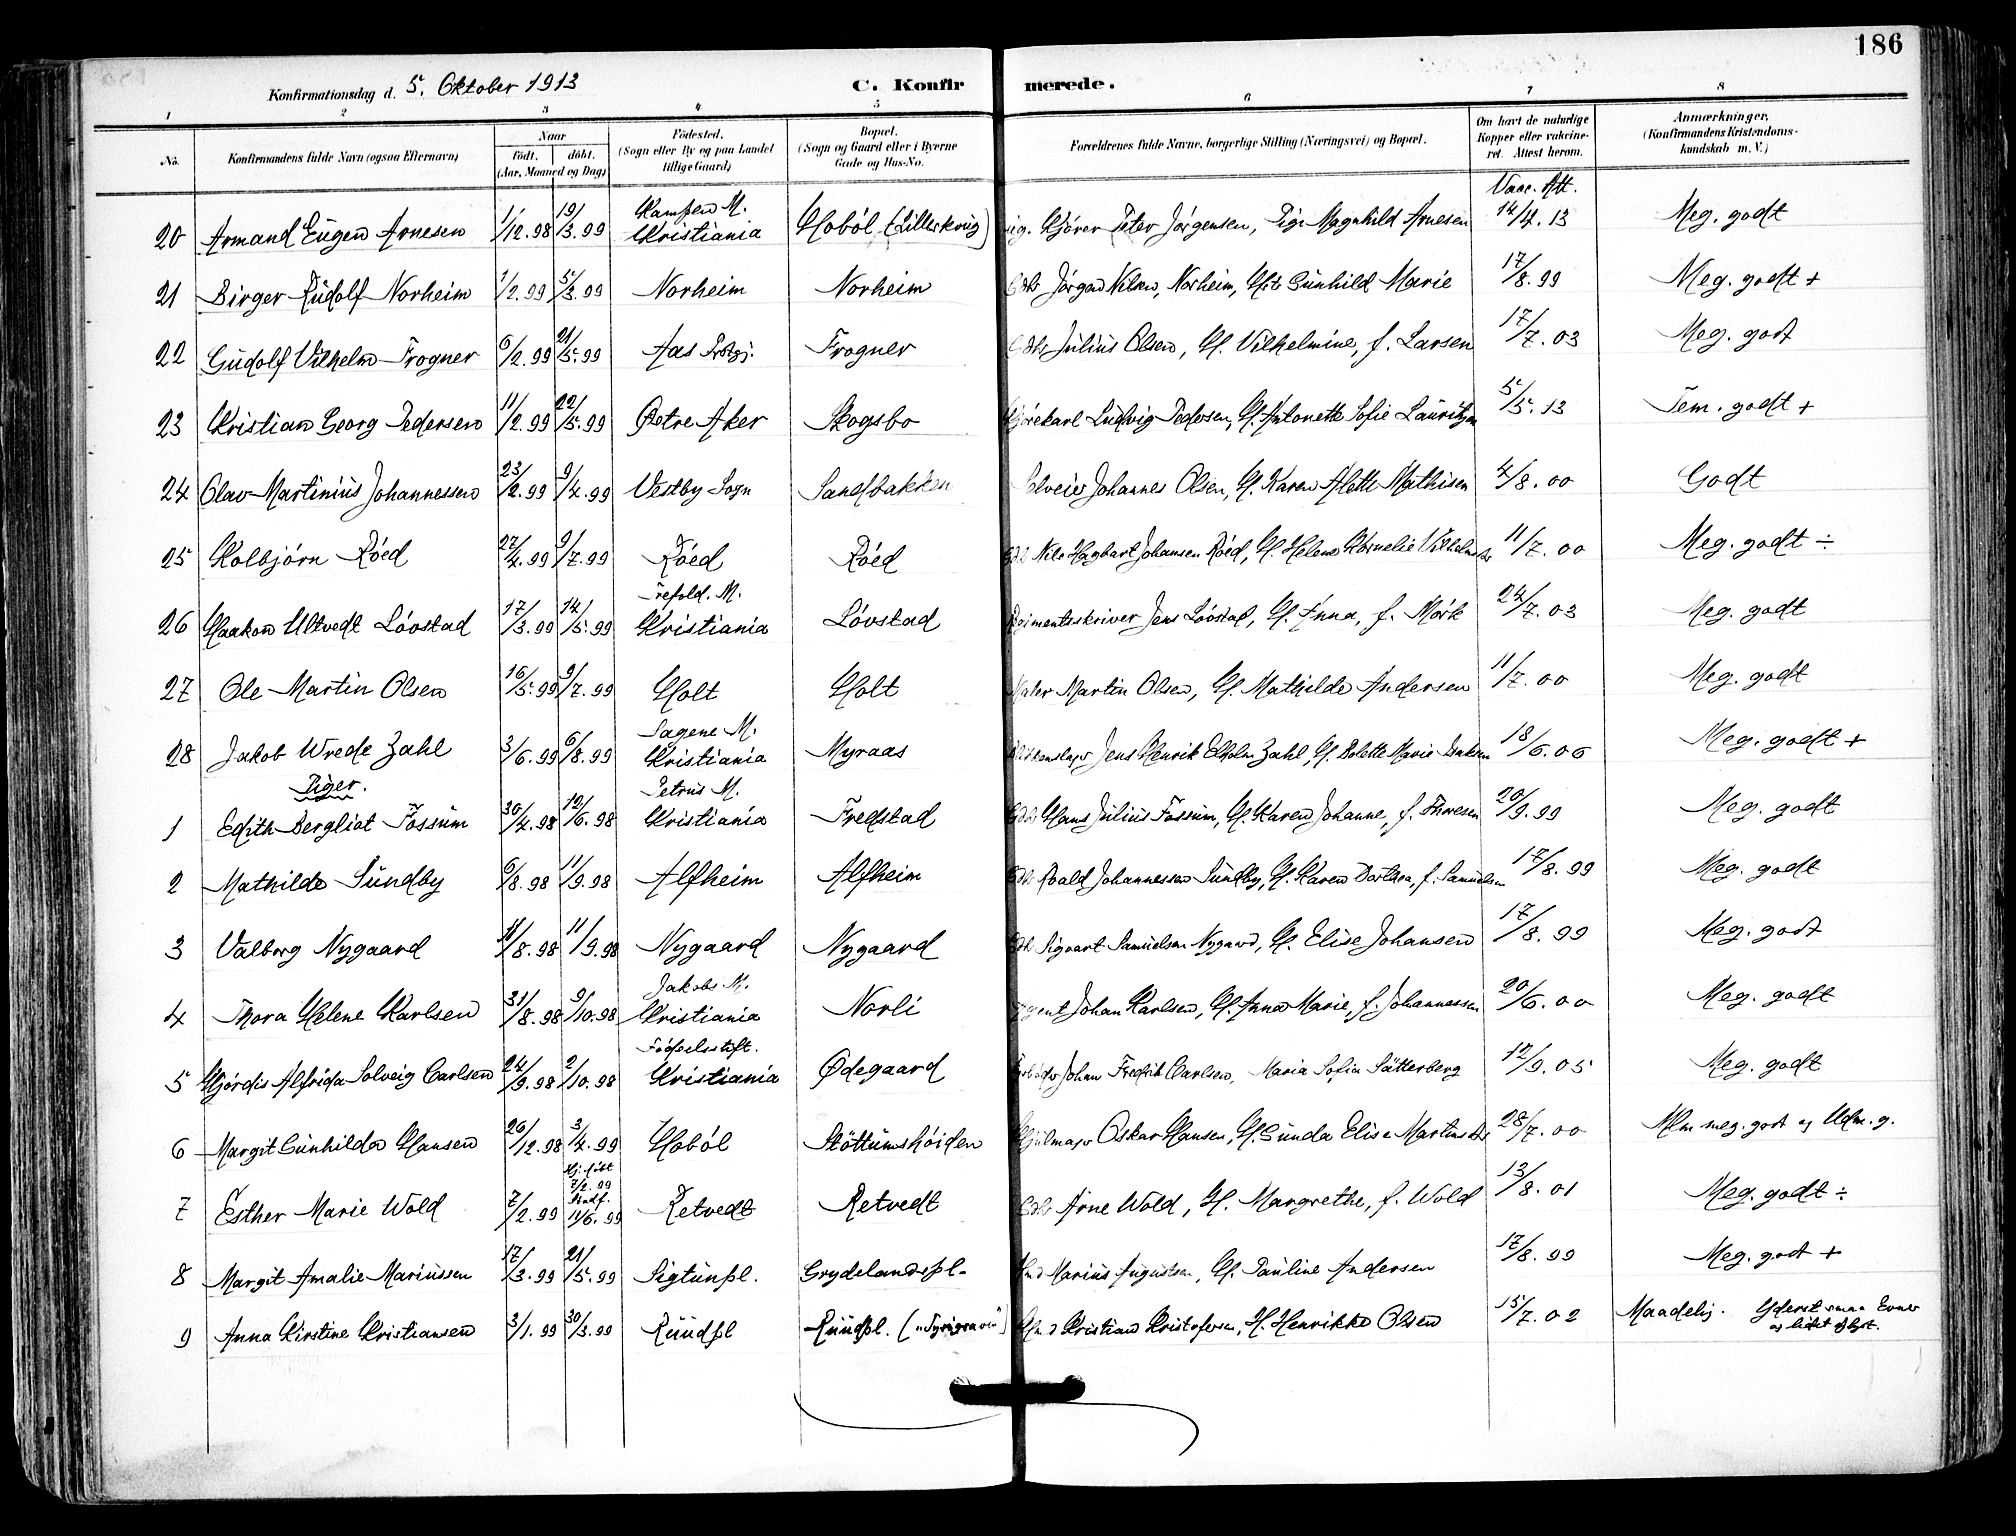 186
Konfirmationsdag d. 5. Oktober 1913 C. Konfirmerede.
1 2 3 4 5 6 7 8
No. Konfirmandens fulde Navn (ogsaa Efternavn)
Naar
født. døbt.
(Aar, Maaned og Dag)
Fødested.
(Sogn eller By og paa Landet
tillige Gaard)
Bopæl.
(Sogn og Gaard eller i Byerne
Gade og Hus-No.
Forældrenes fulde Navne, borgerlige Stilling (Næringsvei) og Bopæl.
Om havt de naturlige
Kopper eller vakcine-
ret. Attest herom.
Anmærkninger.
(Konfirmandens Kristendoms-
kundskab m. V.)
Vacc. Att.
20 Armand Eugen Arnesen 1/12.98 19/3.99 Kampen M. Kristiania Hobøl (Lillekrug) Kjører Peter Jørgensen, Pige Magnhild Arnesen 14/4.13 Meg. godt
21 Birger Rudolf Norheim 1/2.99 5/3.99 Norheim Norheim Jørgen Nilsen, Norheim, Gunhild Marie 17/8.99 Meg. godt +
22 Gudolf Vilhelm Frogner 6/2.99 21/5.99 Aas Frogner Julius Olsen, H. Vilhelmine, f. Larsen 17/7.03 Meg. godt
23 Kristian Georg Pedersen 11/2.99 22/5.99 Østre Aker Skogsbo Kjørekarl Ludvig Pedersen, H. Antonette Sofie Lauritzen 5/5.13 Tem. godt +
24 Olav Martinius Johannessen 23/2.99 9/4.99 Vestby Sogn Sandbakken Selveier Johannes Olsen, H. Karen Alette Mathisen 4/8.00 Godt
25 Kolbjørn Røed 27/4.99 9/7.99 Røed Røed Nils Hagbart Johansen Røed, H. Helene Kornelie 11/7.00 Meg. godt ÷
26 Haakon Ultvedt Løvstad 17/3.99 14/5.99 Trefold. M. Kristiania Løvstad Regimentsskriver Jens Løvstad, H. Anna, f. Mørk 24/7.03 Meg. godt
27 Ole Martin Olsen 16/5.99 9/7.99 Holt Holt Maler Martin Olsen, H. Mathilde Andersen 11/7.00 Meg. godt
28 Jakob Wrede Zahl 3/6.99 6/8.99 Sagene M. Kristiania Myraas Jens Henrik Elholm Zahl, H. Bolette Marie Isaksen 18/6.06 Meg. godt +
Piger.
1 Edith Bergliot Fossum 30/4.98 12/6.98 Petrus M. Kristiania Fredstad Hans Julius Fossum, H. Karen Johanne, f. Thoresen 20/9.99 Meg. godt
2 Mathilde Sundby 6/8.98 11/9.98 Alfheim Alfheim Roald Johannessen Sundby, H. Karen Dorthea, f. Samuelsen 17/8.99 Meg. godt
3 Valborg Nygaard 11/8.98 11/9.98 Nygaard Nygaard Sigvart Samuelsen Nygaard, H. Elise Johansen 17/8.99 Meg. godt
4 Thora Helene Karlsen 31/8.98 9/10.98 Jakobs M. Kristiania Norli Agent Johan Karlsen, H. Anna Marie, f. Johannessen 20/6.00 Meg. godt
5 Hjørdis Alfrida Solveig Carlsen 24/9.98 2/10.98 Fødselsstift. Kristiania Ødegaard Johan Fredrik Carlsen, Maria Sofia Sätterberg 12/9.05 Meg. godt
6 Margit Gunhilda Hansen 26/12.98 3/4.99 Hobøl Støttumshøiden Hjulmager Oskar Hansen, H. Gunda Elise 28/7.00 Mlm meg. godt og Udm. g.
7 Esther Marie Wold 7/2.99 Hj. døbt 7/2.99 Stadf. 11/6.99 Retvedt Retvedt Arne Wold, H. Margrethe, f. Wold 13/8.01 Meg. godt ÷
8 Margit Amalie Mariussen 17/3.99 21/5.99 Sigtunpl. Grydelandspl. Marius Augustsen, H. Pauline Andersen 17/8.99 Meg. godt +
9 Anna Kirstine Kristiansen 3/1.99 30/3.99 Ruudpl Ruudpl. Kristian Kristofersen, H. Henrikke Olsen 15/7.02 Maadelig. Yderst smaa Evner